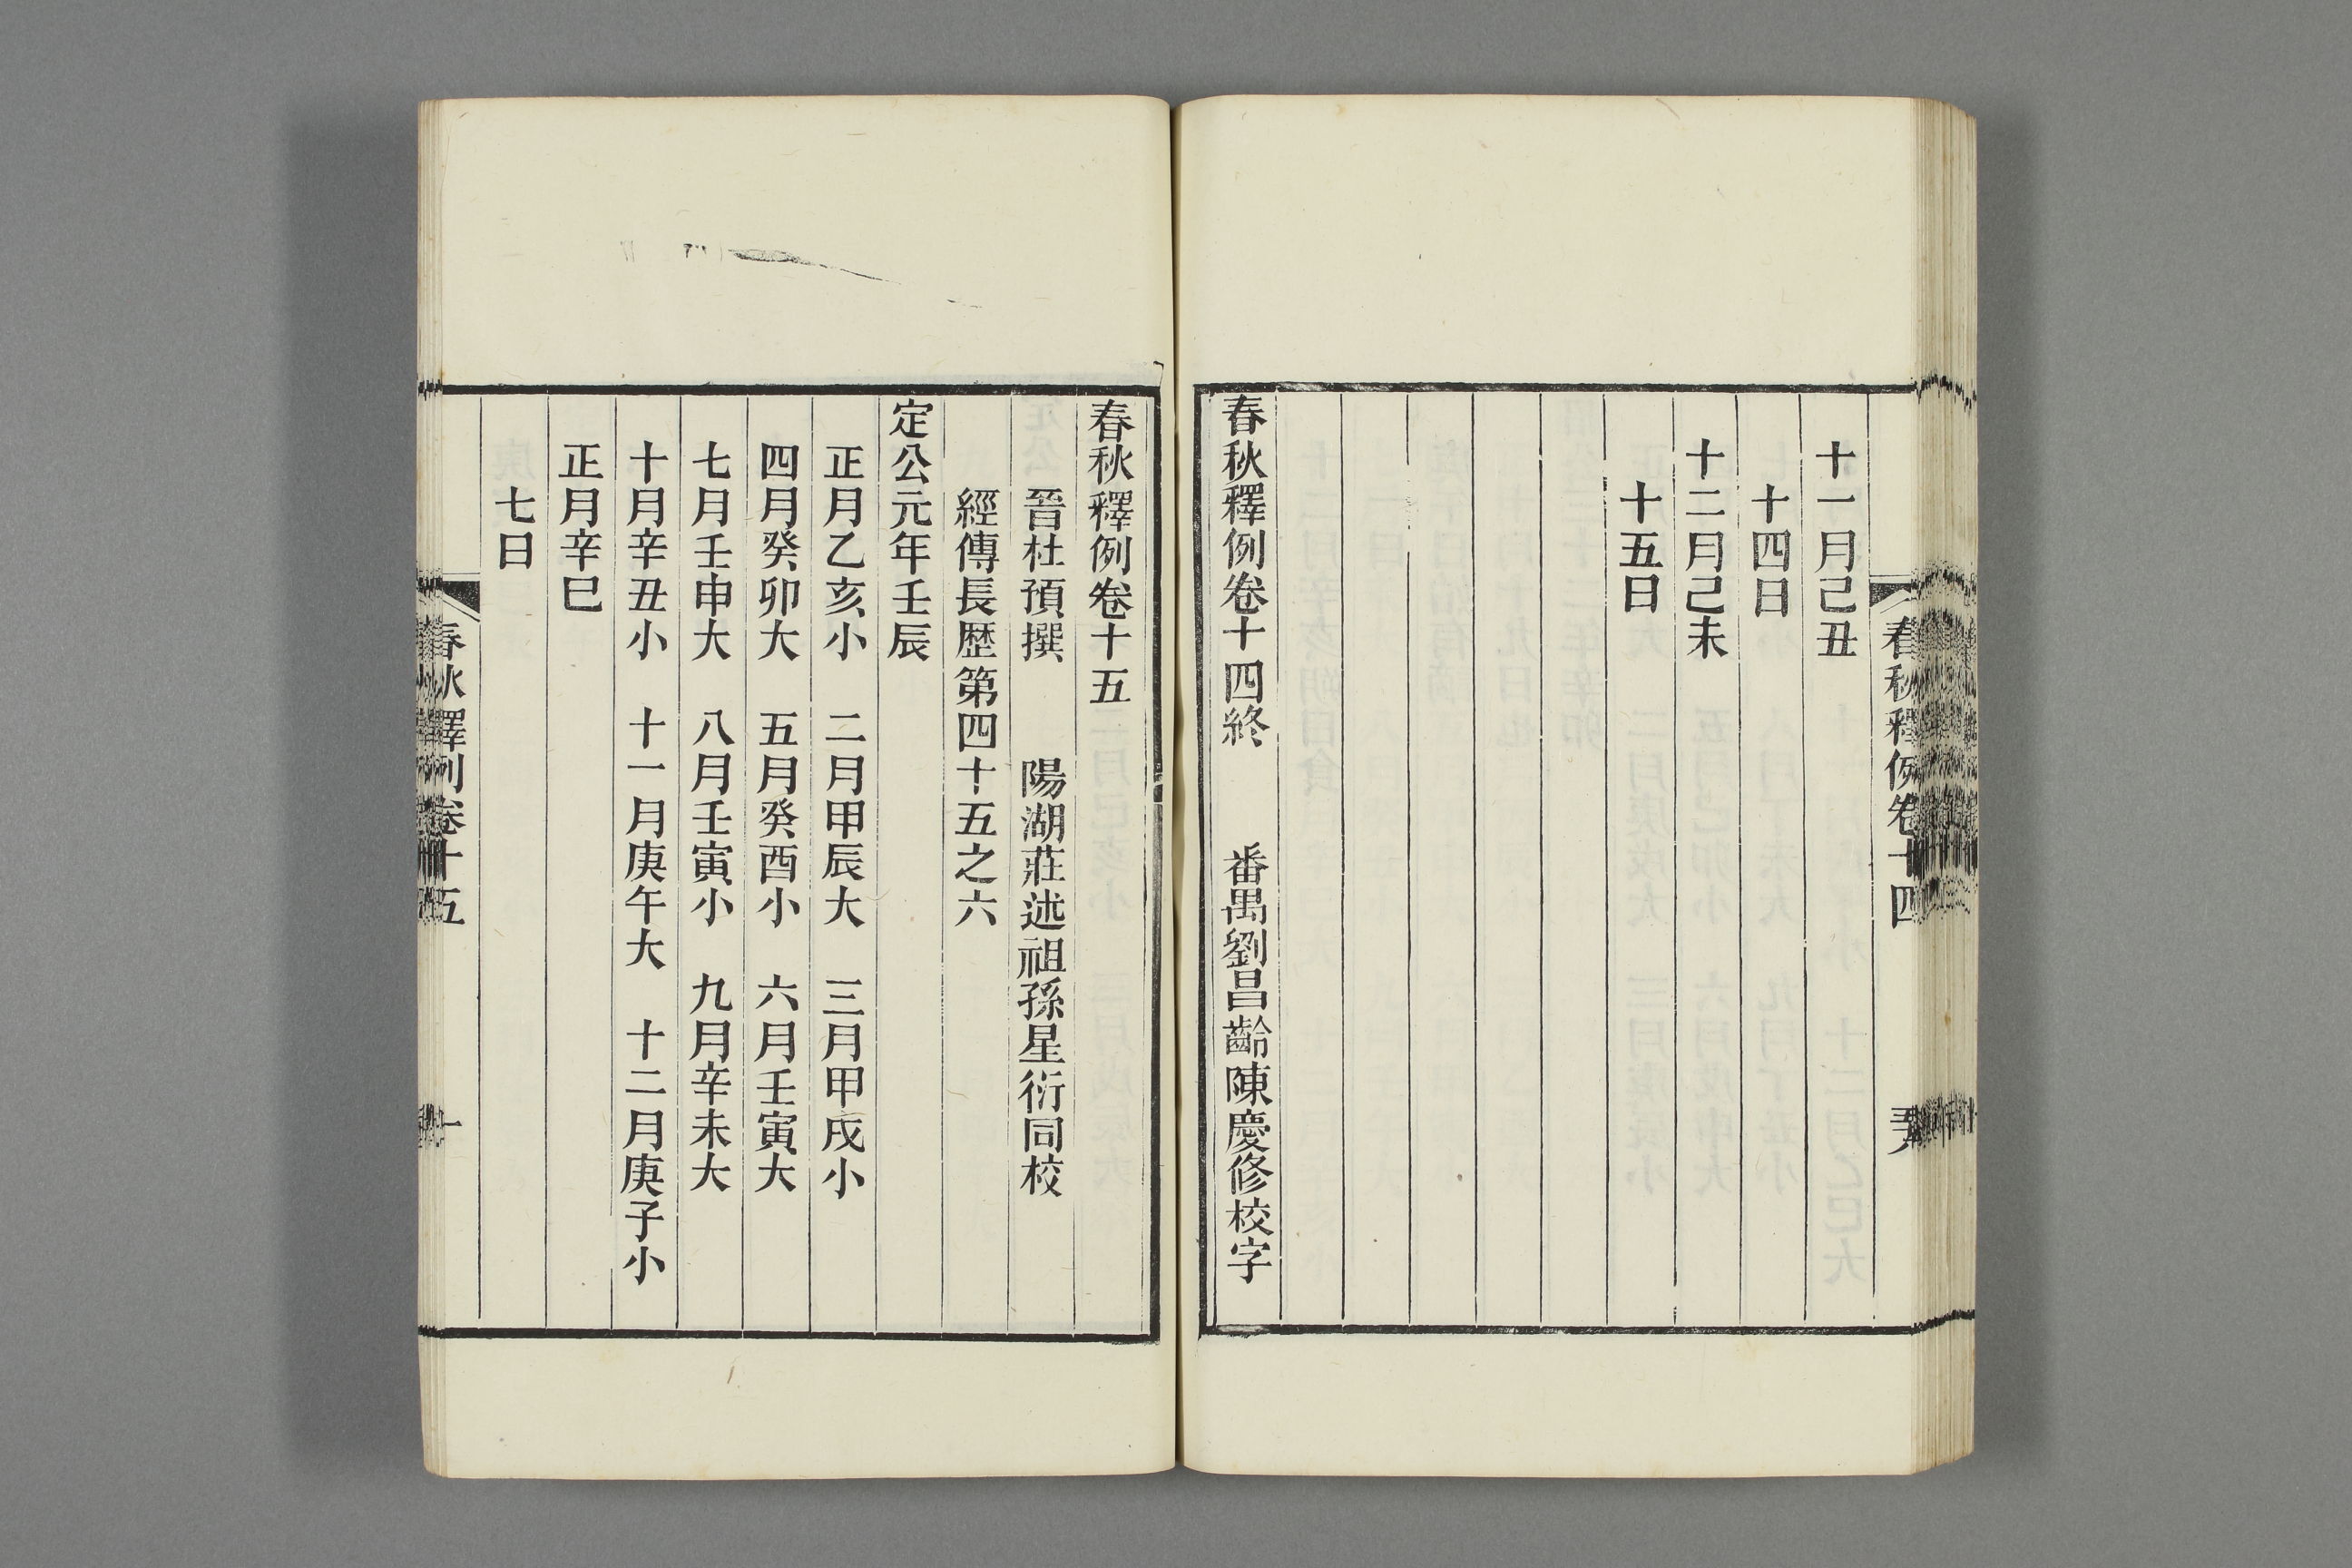 十一月己丑
十四日
十二月己未
十五日
春秋釋例卷十四終　番禺劉昌齡陳慶修校字
春秋釋例卷十四
春秋釋例卷十五
晉杜預撰　陽湖莊述祖孫星衍同校
經傳長歷第四十五之六
定公元年壬辰
正月乙亥小　二月甲辰大　三月甲戌小
四月癸卯大　五月癸酉小　六月壬寅大
七月壬申大　八月壬寅小　九月辛未大
十月辛丑小　十一月庚午大　十二月庚子小
正月辛巳
七日
春秋釋例卷十五
一